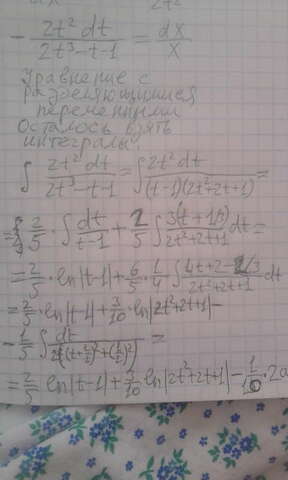 - 2t² dt / 2t³-t-1 = dx / x
Уравнение с
разделяющимися
переменными
Осталось взять
интегралы:
∫ 2t² dt / 2t³-t-1 = ∫ 2t² dt / (t-1)(2t²+2t+1) =
= 2/5 · ∫ dt / t-1 + 2/5 ∫ 3(t+1/3) / 2t²+2t+1 dt =
= 2/5 · ln|t-1| + 6/5 · 1/4 ∫ 4t+2-2/3 / 2t²+2t+1 dt
= 2/5 · ln|t-1| + 3/10 · ln|2t²+2t+1| -
- 1/5 ∫ dt / 2((t+1/2)²+(1/2)²) =
= 2/5 ln|t-1| + 3/10 ln|2t²+2t+1| - 1/10 · 2a